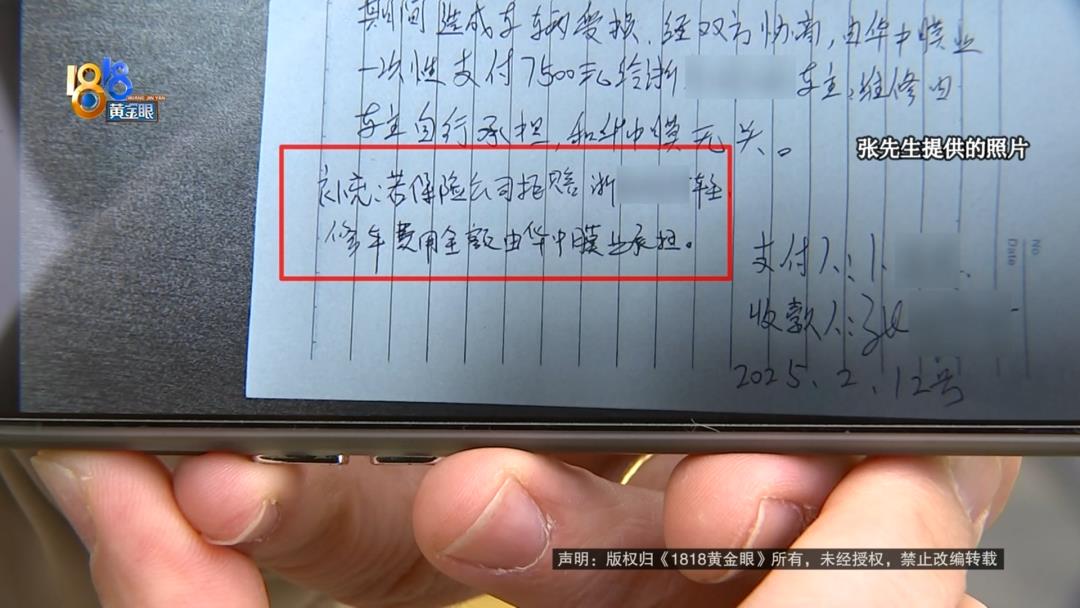 期间造成车辆受损，经双方协商，由华中膜业
一次性支付7500元给浙 车主，维修由
车主自行承担，和华中膜无关。
补充：若保险公司拒赔浙 车主
修车费用全额由华中膜业承担。
支付人：
收款人：张
2025.2.12号
No
Date
1818
HUANG JIN YAN
黄金眼
张先生提供的照片
声明：版权归《1818黄金眼》所有，未经授权，禁止改编转载